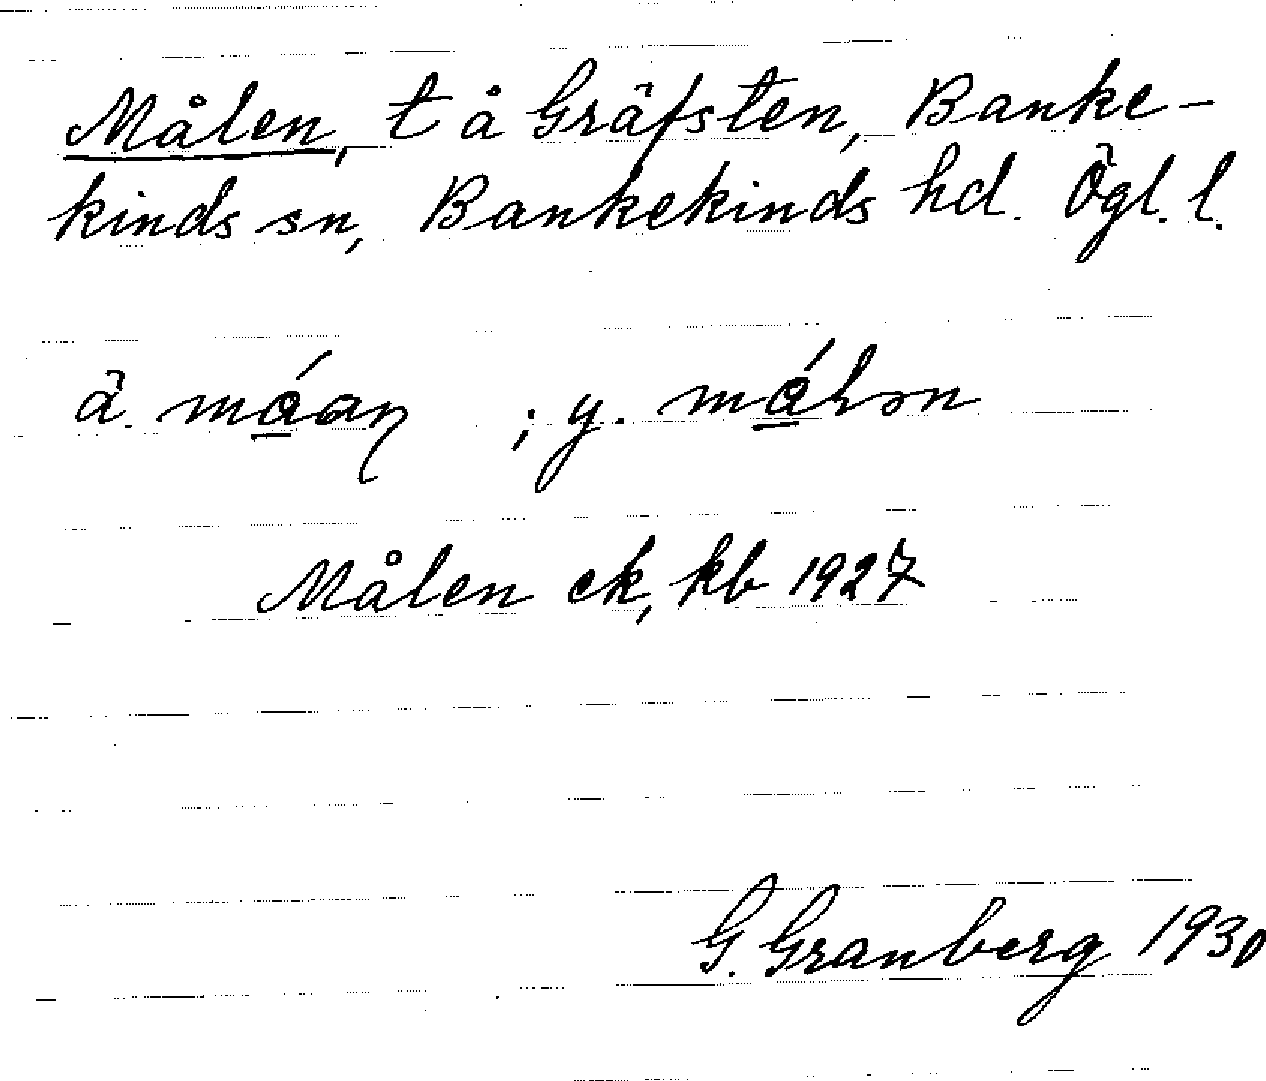 Målen, t å Gräfsten, Banke-
kinds sn, Bankekinds hd. Ögl. l.
ä. ; y.
Målen ek, kb 1927
G. Granberg 1930